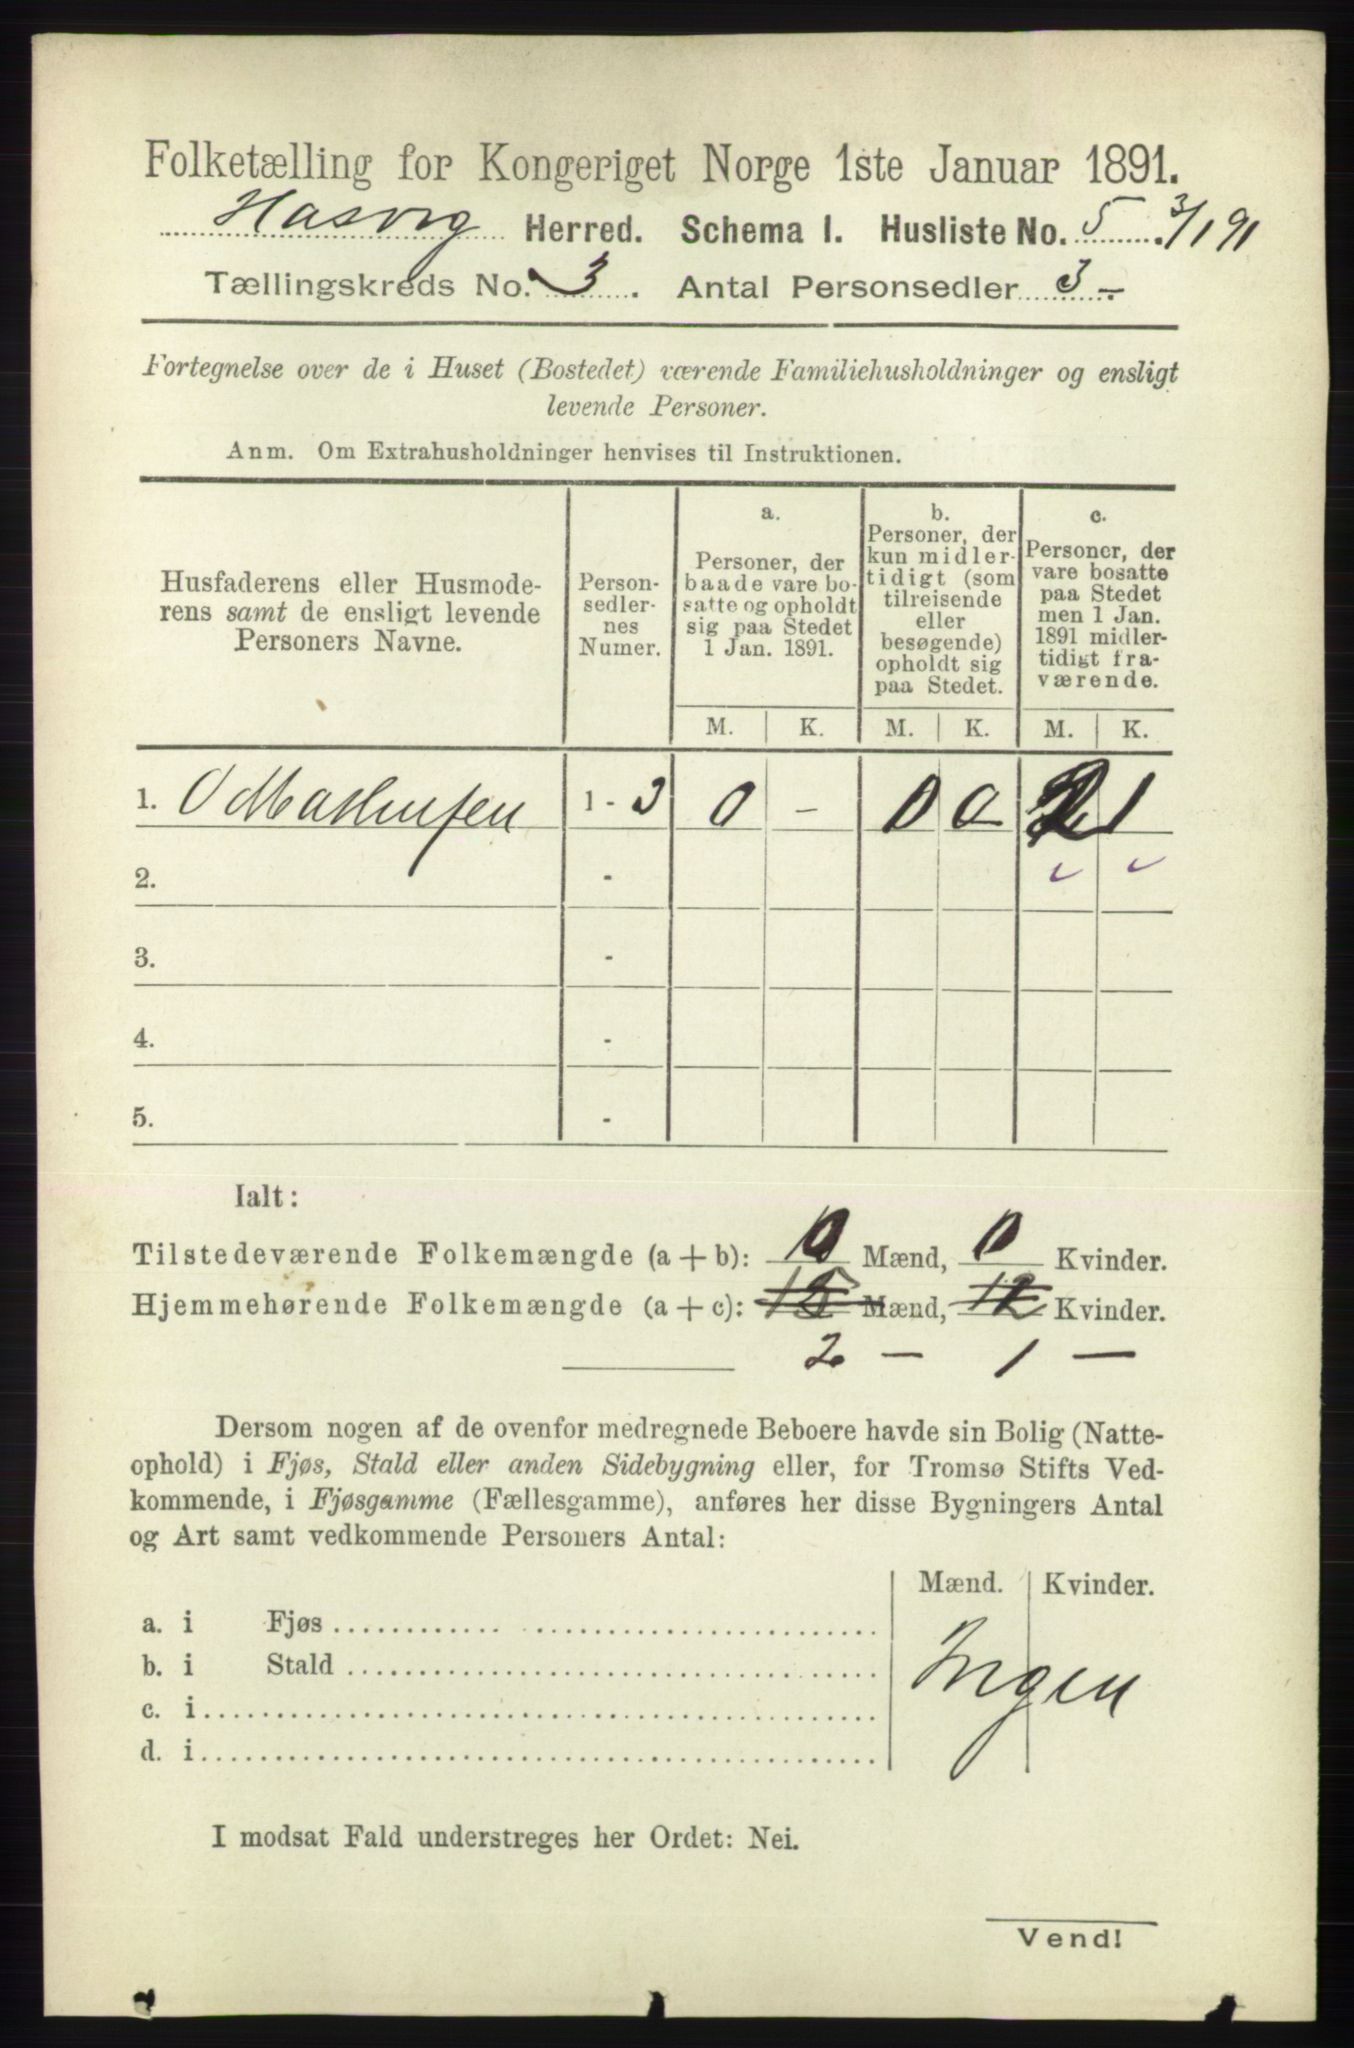 Folketælling for Kongeriget Norge 1ste Januar 1891.
Hasvig Herred. Schema I. Husliste No. 5 3/1 91
Tællingskreds No. 3. Antal Personsedler 3 -
Fortegnelse over de i Huset (Bostedet) værende Familiehusholdninger og ensligt
levende Personer.
Anm. Om Extrahusholdninger henvises til Instruktionen.
Husfaderens eller Husmode-
rens samt de ensligt levende
Personers Navne.
Person-
sedler-
nes
Numer.
a.
Personer, der
baade vare bo-
satte og opholdt
sig paa Stedet
1 Jan. 1891.
b.
Personer, der
kun midler-
tidigt (som
tilreisende
eller
besøgende)
opholdt sig
paa Stedet.
c.
Personer, der
vare bosatte
paa Stedet
men 1 Jan.
1891 midler-
tidigt fra-
værende.
M. K. M. K. M. K.
1. 1 - 3 0 - 0 0 2 1
2. -
3. -
4. -
5. -
Ialt:
Tilstedeværende Folkemængde (a + b): 0 Mænd, 0 Kvinder.
Hjemmehørende Folkemængde (a + c): 15 Mænd, 12 Kvinder.
2 - 1 -
Dersom nogen af de ovenfor medregnede Beboere havde sin Bolig (Natte-
ophold) i Fjøs, Stald eller anden Sidebygning eller, for Tromsø Stifts Ved-
kommende, i Fjøsgamme (Fællesgamme), anføres her disse Bygningers Antal
og Art samt vedkommende Personers Antal:
Mænd. Kvinder.
a. i Fjøs
b. i Stald
Ingen
c. i
d. i
I modsat Fald understreges her Ordet: Nei.
Vend!